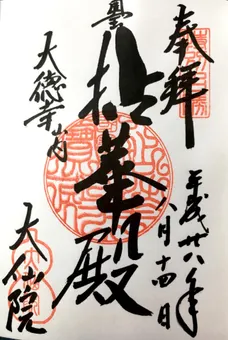 奉拝
平成廿八年
八月十四日
拈華殿
大徳寺内
大仙院